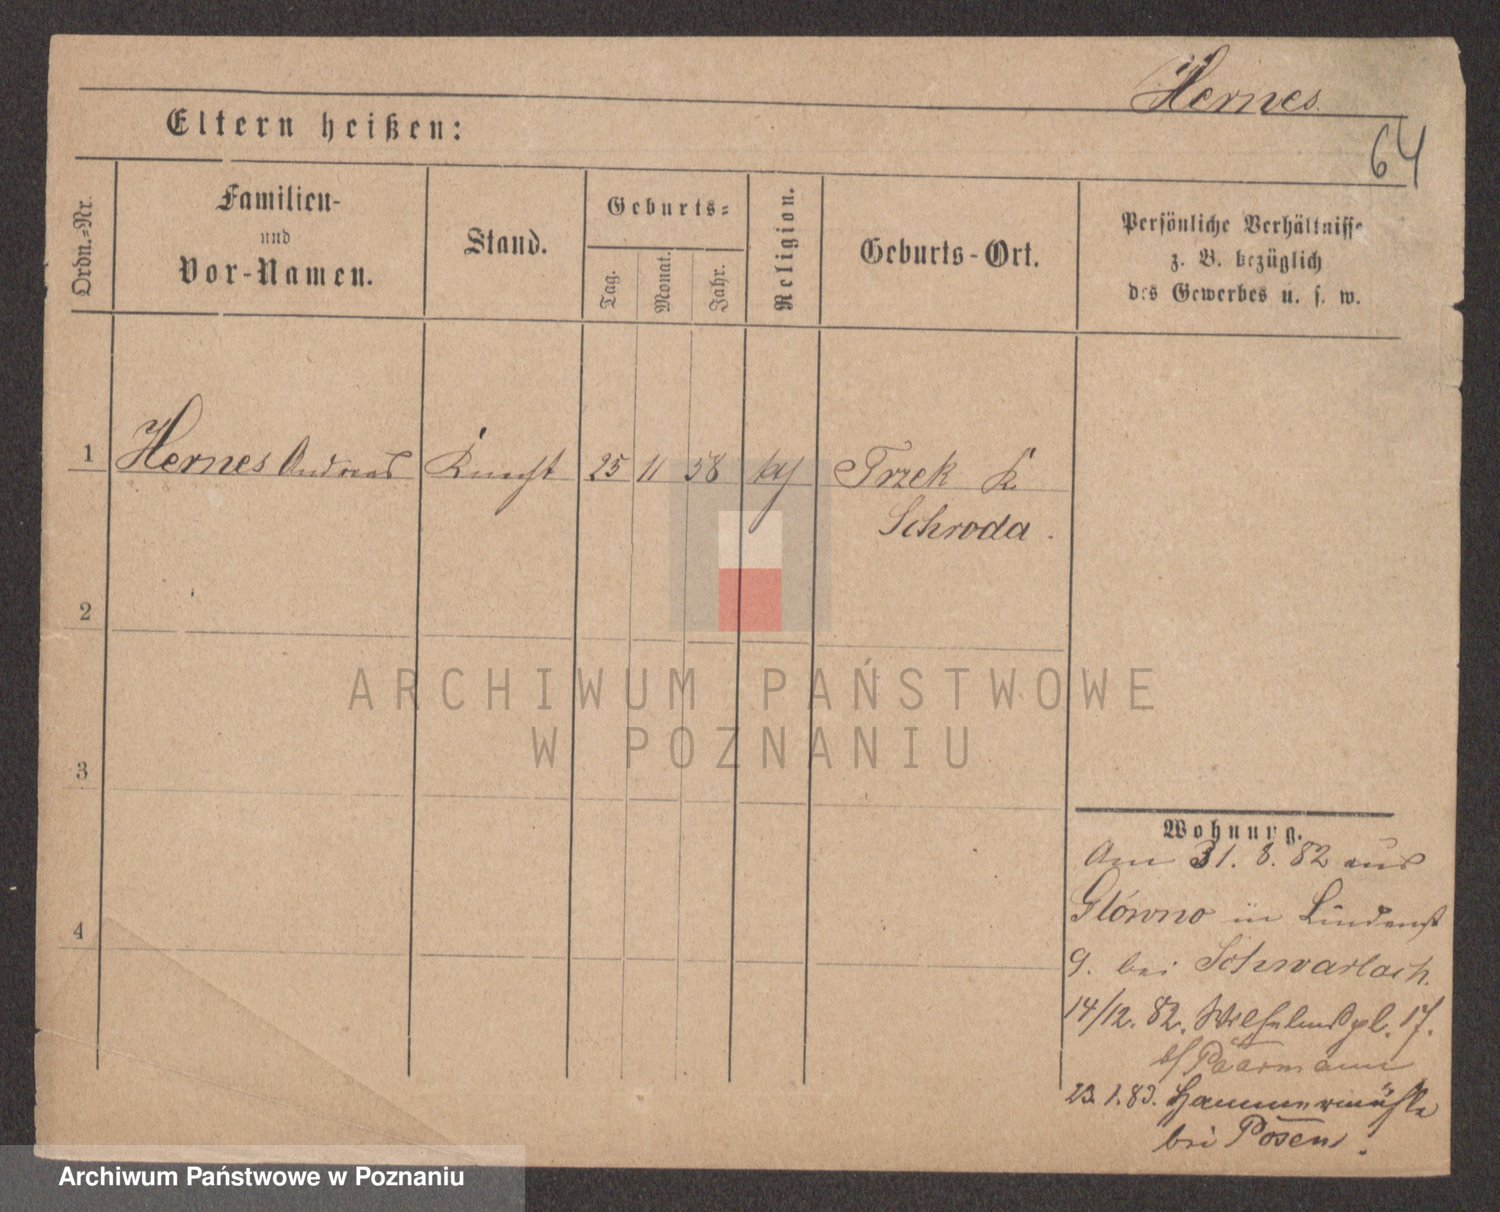 Hernes.
Eltern heißen:
64
Ordn.-Nr.
Familien-
und
Vor-Namen.
Stand.
Geburts-
Tag.
Monat.
Jahr.
Religion.
Geburts-Ort.
Persönliche Verhältnisse
z. B. bezüglich
des Gewerbes u. s. w.
1 Hernes Andreas Knecht 25 11 58 kth Trzek K.
Schroda.
2
3
4
Wohnung.
Am 31. 8. 82 aus
Glówno in Lindenst
9. bei Schwarlach.
14/12. 82. Wilhelmspl. 17.
b/ Paarmann
23. 1. 83. Hammermühle
bei Posen.
ARCHIWUM PAŃSTWOWE
W POZNANIU
Archiwum Państwowe w Poznaniu